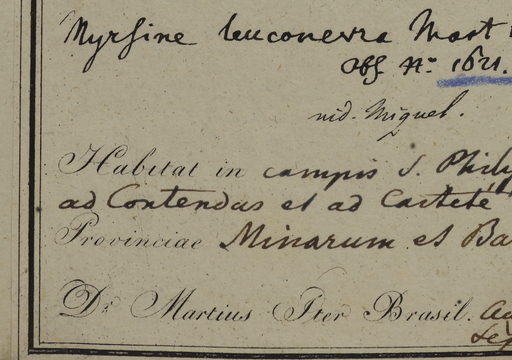 Myrsine leuconevra Mart
Obs No. 1621.
vid. Miquel.
Habitat in campis S. Phil
ad Contendas et ad Caiteté
Provinciae Minarum et Ba
Dr. Martius Iter Brasil.